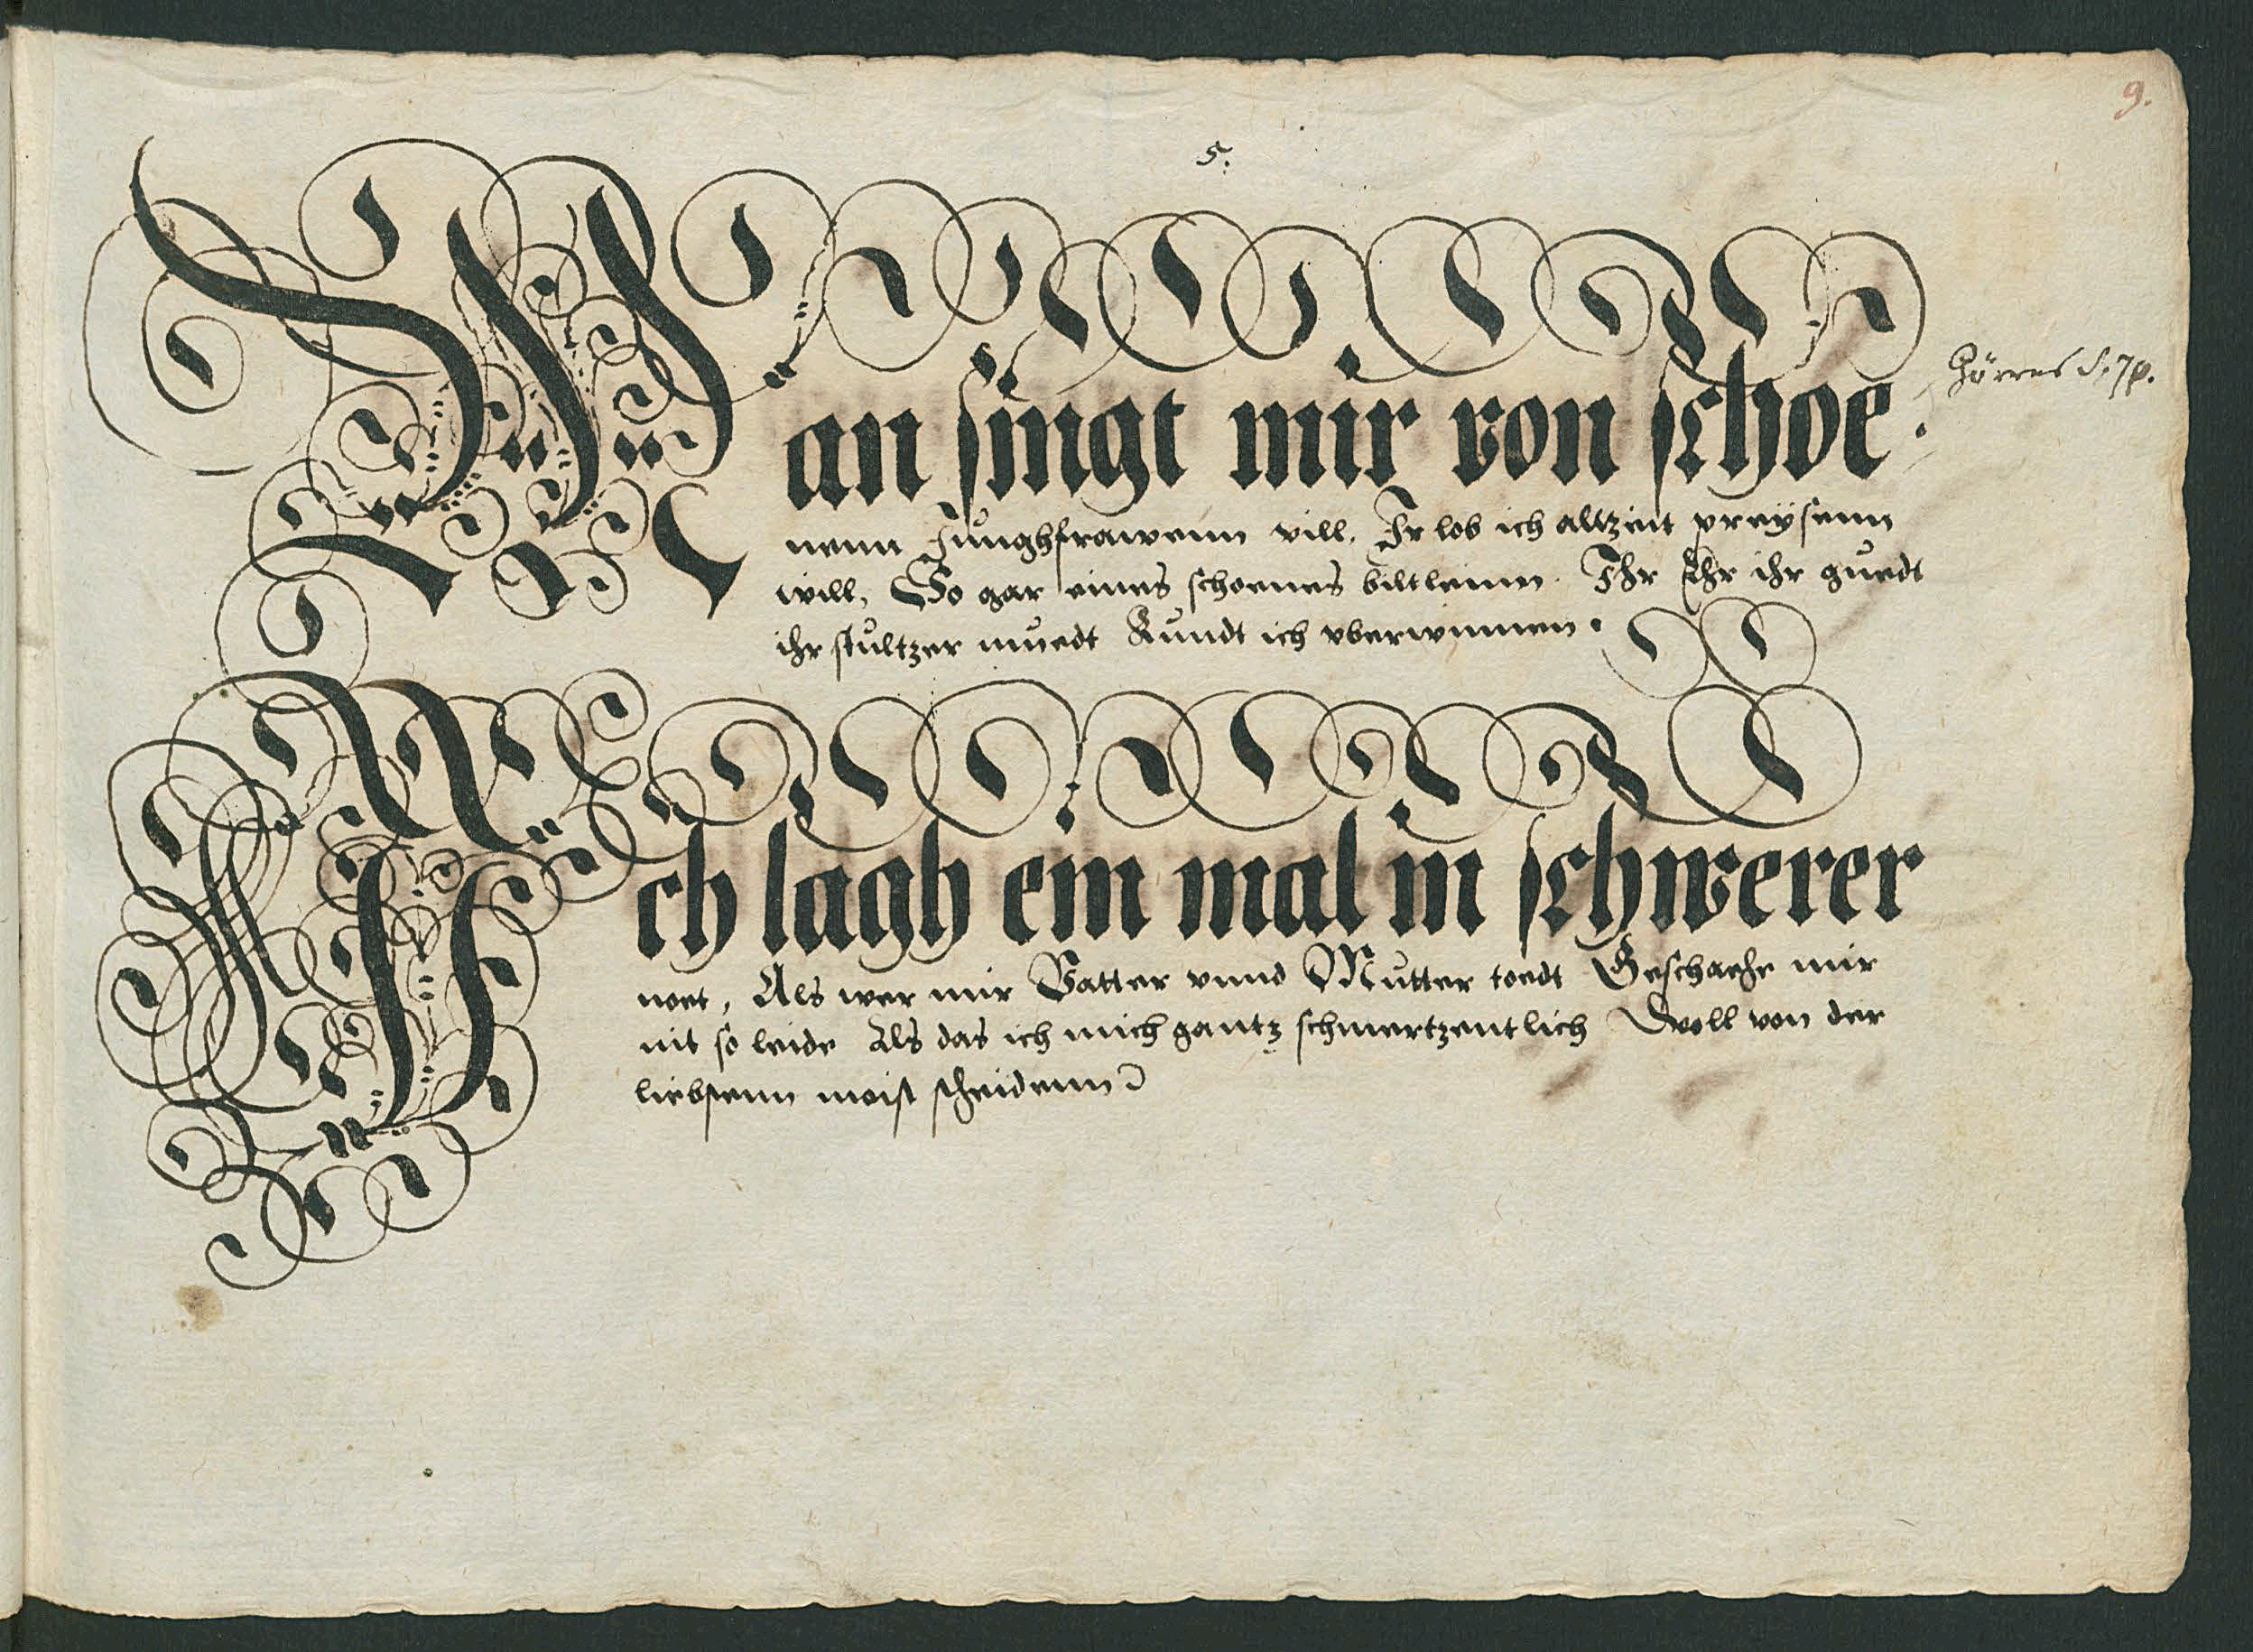 9.
5.
Man singt mir von schoe
nenn Junghfrawenn vill, Ir lob ich altzeit preÿsenn
will, So gar eines schoenes biltleinn. Ihr Ehr ihr guedt
ihr stultzer muedt Kundt ich vberwinnen.
Görres S. 78.
Ich lagh ein mal in schwerer
noet, Als wer mir Vatter vnnd Mutter toedt Geschaehe mir
nit so leide Als das ich mich gantz schmertzentlich Woll von der
liebstenn moist scheidenn